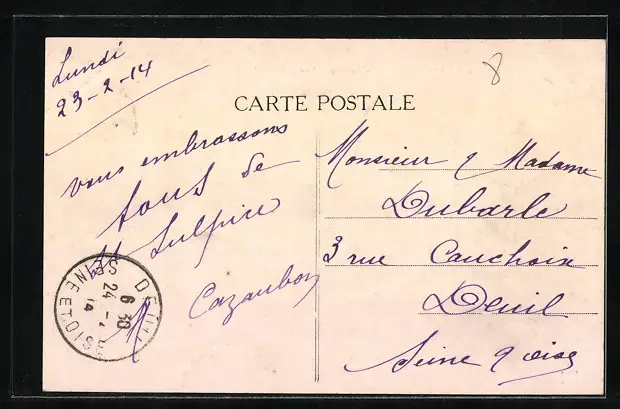 Lundi
23-2-14
8
CARTE POSTALE
vous embrassons
tous de
St Sulpice
Cazaubon
Monsieur & Madame
Dubarle
3 rue Cauchoix
Deuil
Seine & oise
DEUIL
SEINE ET OISE
6 30
24 - 2
14